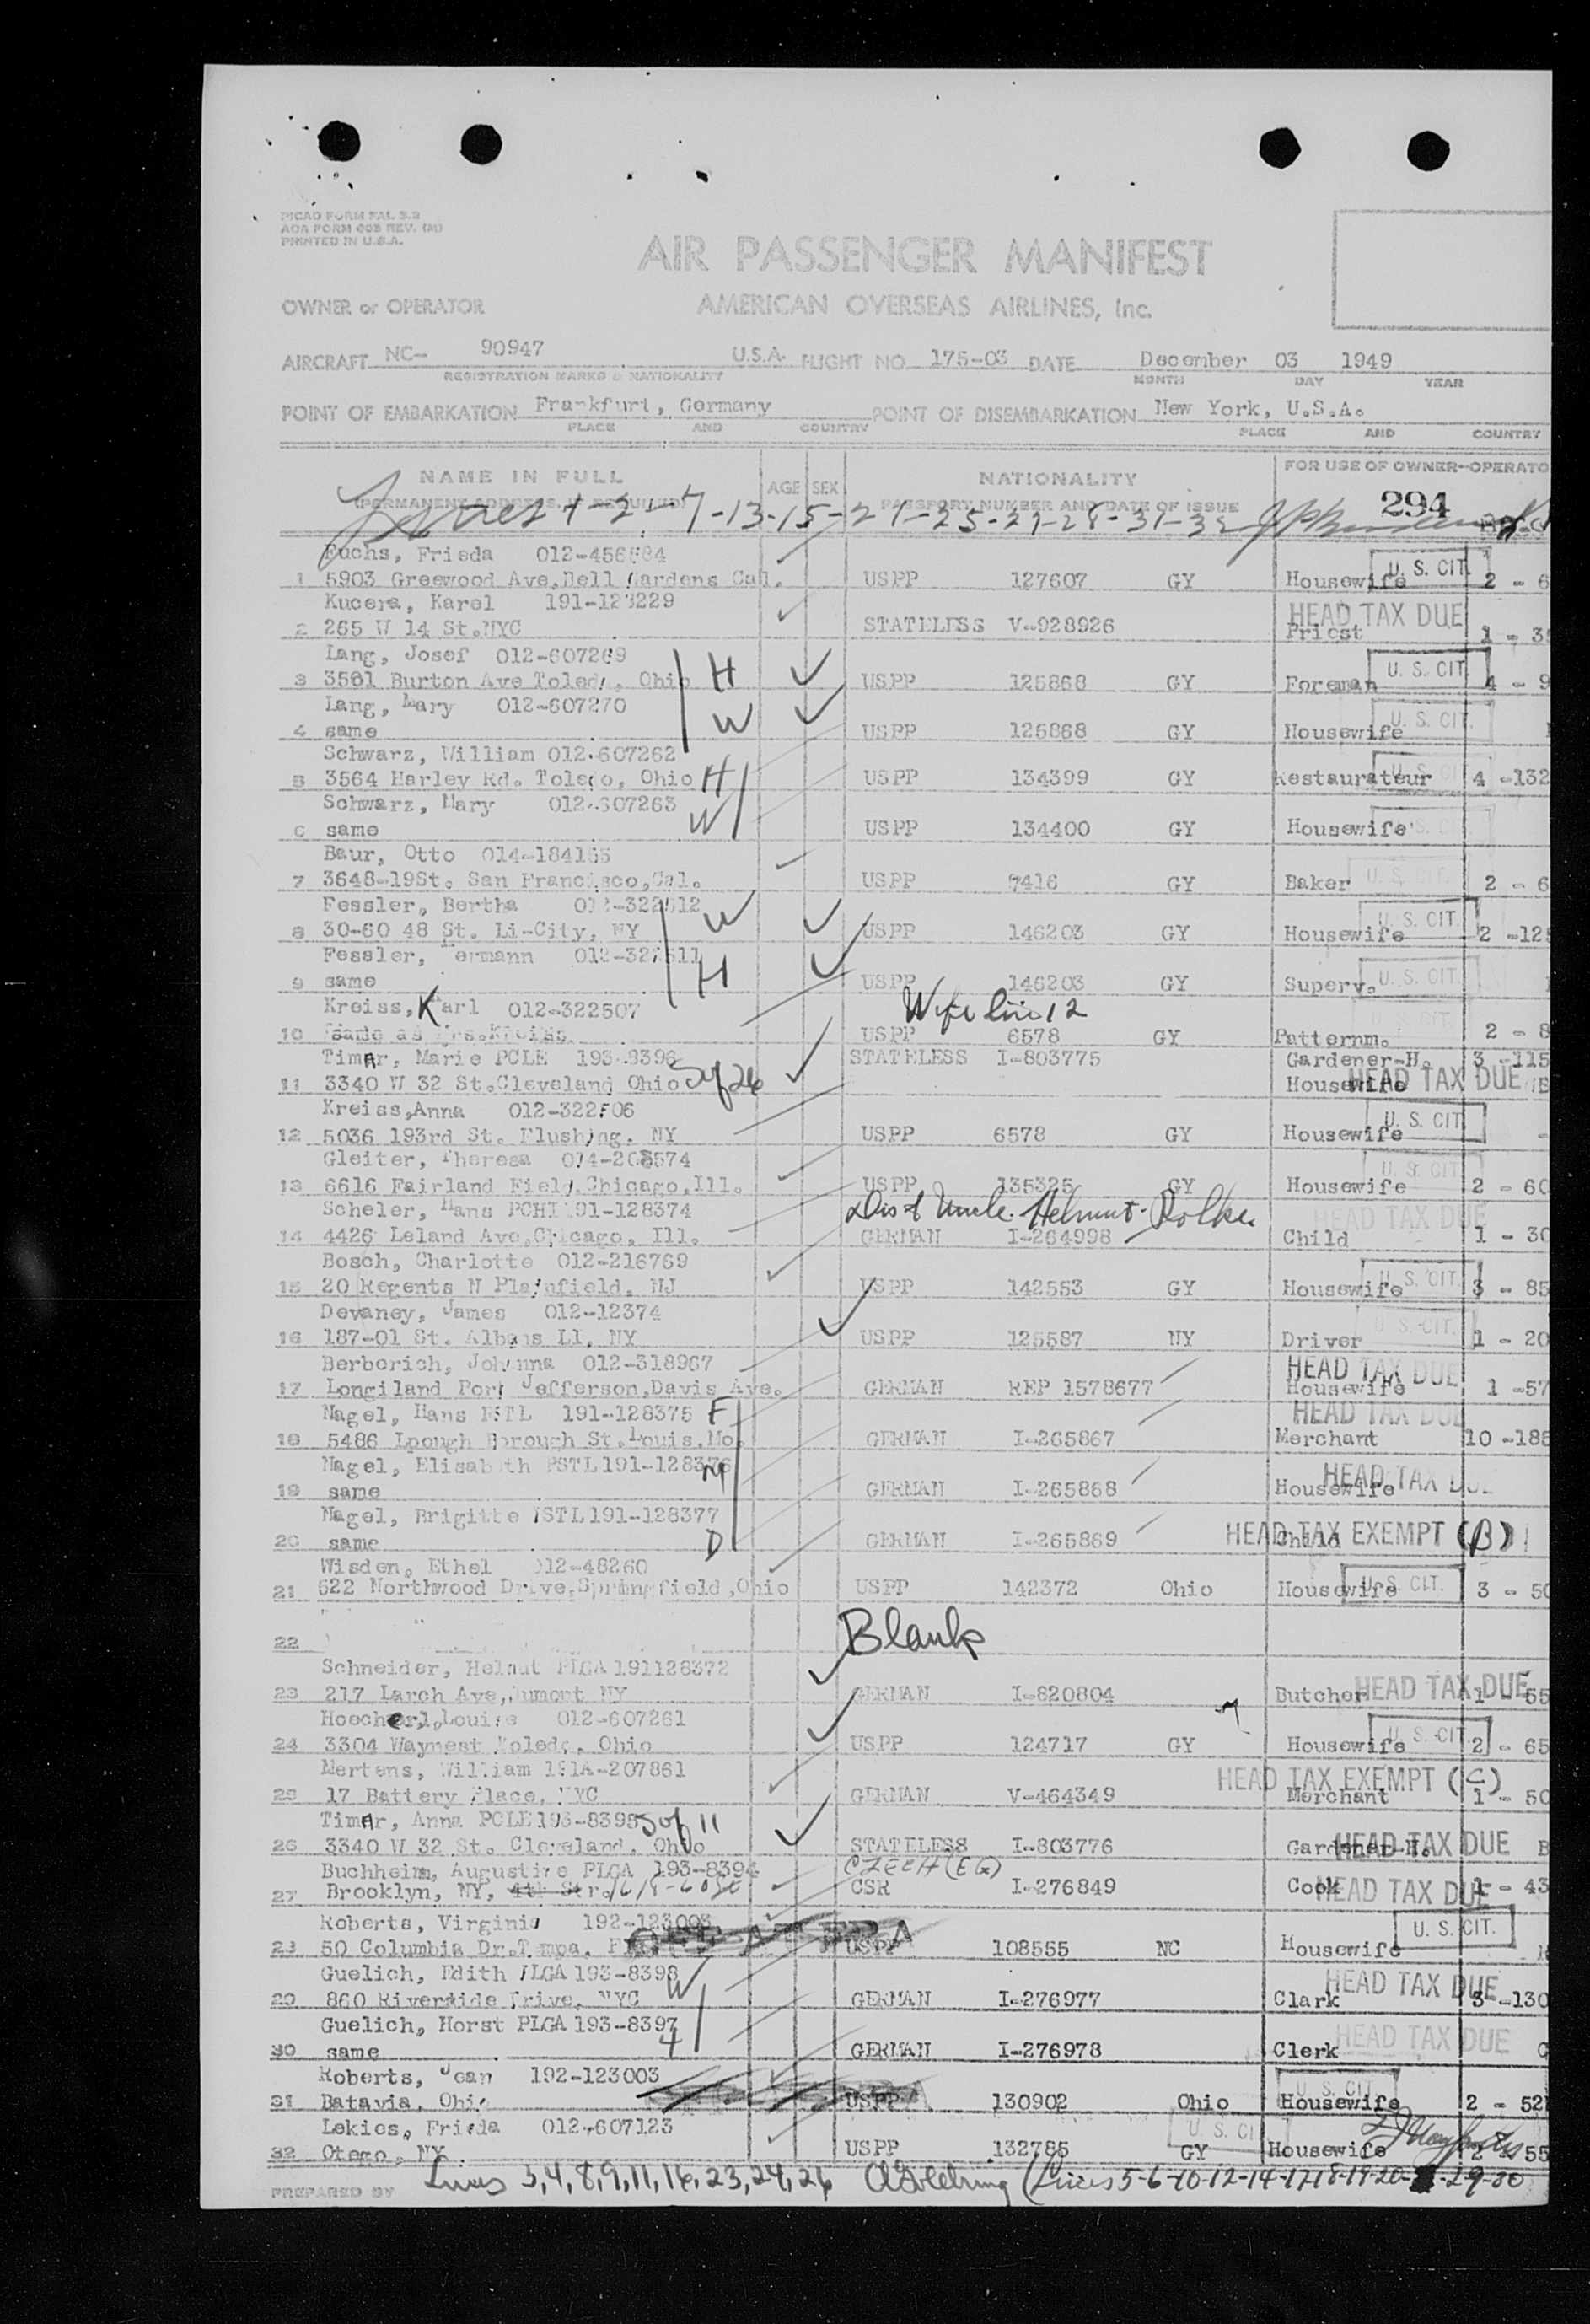 PICAO FORM FAL 3.2
AOA FORM 608 REV. (M)
PRINTED IN U.S.A.
AIR PASSENGER MANIFEST
OWNER or OPERATOR AMERICAN OVERSEAS AIRLINES, Inc.
AIRCRAFT NC- 90947 U.S.A. FLIGHT NO. 175-03 DATE December 03 1949
REGISTRATION MARKS & NATIONALITY MONTH DAY YEAR
POINT OF EMBARKATION Frankfurt, Germany POINT OF DISEMBARKATION New York, U.S.A.
PLACE AND COUNTRY PLACE AND COUNTRY
NAME IN FULL AGE SEX NATIONALITY FOR USE OF OWNER-OPERATO
(PERMANENT ADDRESS, IF REQUIRED) PASSPORT NUMBER AND DATE OF ISSUE 294
Lines 1-2-7-13-15-21-25-27-28-31-32
Fuchs, Frieda 012-456584
1 5903 Greewood Ave,Bell Gardens Cal. USPP 127607 GY Housewife U. S. CIT. 2 - 6
Kucera, Karel 191-123229
2 265 W 14 St.NYC STATELESS V-928926 Priest HEAD TAX DUE 1 - 3
Lang, Josef 012-607269
3 3561 Burton Ave Toledo, Ohio H USPP 125868 GY Foreman U. S. CIT. 4 - 9
Lang, Mary 012-607270
4 same W USPP 125868 GY Housewife U. S. CIT.
Schwarz, William 012-607262
5 3564 Harley Rd. Toledo, Ohio H USPP 134399 GY Restaurateur 4 -132
Schwarz, Mary 012-607263
6 same W USPP 134400 GY Housewife
Baur, Otto 014-184155
7 3648-19St. San Francisco,Cal. USPP 7416 GY Baker U. S. CIT. 2 - 6
Fessler, Bertha 012-322512
8 30-60 48 St. Li-City, NY W USPP 146203 GY Housewife U. S. CIT. 2 -12
Fessler, Hermann 012-322511
9 same H USPP 146203 GY Superv. U. S. CIT.
Kreiss, Karl 012-322507 Wife line 12
10 Same as Mrs.Kreiss. USPP 6578 GY Patternm. 2 - 8
Timar, Marie PCLE 193-8396 STATELESS I-803775 Gardener-H. 3 -115
11 3340 W 32 St.Cleveland Ohio S of 26 Housewife HEAD TAX DUE
Kreiss,Anna 012-322506
12 5036 193rd St. Flushing. NY USPP 6578 GY Housewife U. S. CIT.
Gleiter, Theresa 014-203574
13 6616 Fairland Field,Chicago,Ill. USPP 135325 GY Housewife U. S. CIT. 2 - 60
Scheler, Hans PCHI 191-128374 Dis of Uncle. Helmut Rolke
14 4426 Leland Ave,Chicago, Ill. GERMAN I-264998 Child HEAD TAX DUE 1 - 30
Bosch, Charlotte 012-216769
15 20 Regents N Plainfield, NJ USPP 142553 GY Housewife U. S. CIT. 3 - 85
Devaney, James 012-12374
16 187-01 St. Albans LI, NY USPP 125587 NY Driver U. S. CIT. 1 - 20
Berborich, Johanna 012-318967
17 Longiland Port Jefferson,Davis Ave. GERMAN REP 1578677 Housewife HEAD TAX DUE 1 -57
Nagel, Hans PSTL 191-128375 F
18 5486 Lpough Borough St.Louis,Mo. GERMAN I-265867 Merchant HEAD TAX DUE 10 -185
Nagel, Elisabeth PSTL191-128376 M
19 same GERMAN I-265868 Housewife HEAD TAX DUE
Nagel, Brigitte PSTL191-128377
20 same D GERMAN I-265869 Child HEAD TAX EXEMPT (B)
Wisden, Ethel 012-48260
21 622 Northwood Drive,Springfield,Ohio USPP 142372 Ohio Housewife U. S. CIT. 3 - 50
22 Blank
Schneider, Helmut PLGA 191128372
23 217 Larch Ave,Dumont NY GERMAN I-820804 Butcher HEAD TAX DUE 1 - 55
Hoecherl,Louise 012-607261
24 3304 Waynest Toledo, Ohio USPP 124717 GY Housewife U. S. CIT. 2 - 65
Mertens, William 191A-207861
25 17 Battery Place, NYC GERMAN V-464349 Merchant HEAD TAX EXEMPT (C) 1 - 50
Timar, Anna PCLE193-8395 S of 11
26 3340 W 32 St. Cleveland, Ohio STATELESS I-803776 Gardener-H. HEAD TAX DUE
Buchheim, Augustine PLGA 193-8394 CZECH (EQ)
27 Brooklyn, NY, 4th Str. CSR I-276849 Cook HEAD TAX DUE 1 - 43
Roberts, Virginia 192-123003
28 50 Columbia Dr.Tampa. USPP 108555 NC Housewife U. S. CIT.
Guelich, Edith PLGA 193-8398 W
29 860 Riverside Drive, NYC GERMAN I-276977 Clark HEAD TAX DUE 3 -130
Guelich, Horst PLGA 193-8397
30 same H GERMAN I-276978 Clerk HEAD TAX DUE
Roberts, Jean 192-123003
31 Batavia, Ohio USPP 130902 Ohio Housewife U. S. CIT. 2 - 52
Lekies, Frieda 012-607123
32 Otego, NY USPP 132785 GY Housewife U. S. CIT. 2 55
PREPARED BY Lines 3,4,8,9,11,16,23,24,26 (Lines 5-6-10-12-14-17-18-19-20- -29-30)